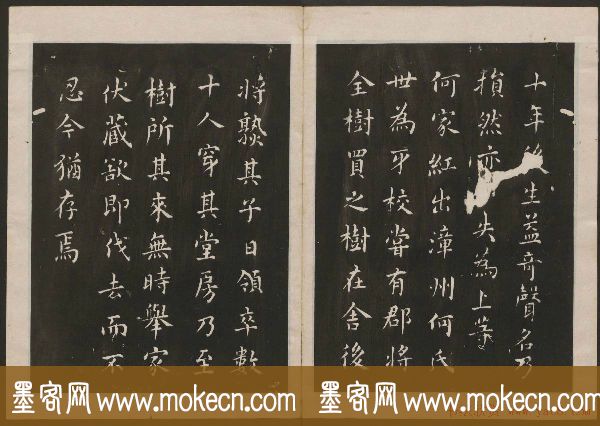 十年後生益奇聲名乃
損然亦失為上等
何家紅出漳州何氏
世為牙校嘗有郡將
全樹買之樹在舍後
將熟其子日領卒數
十人穿其堂房乃至
樹所其來無時舉家
伏藏欲即伐去而不
忍今猶存焉
墨客网 www.mokecn.com 墨客网 www.mokecn.com